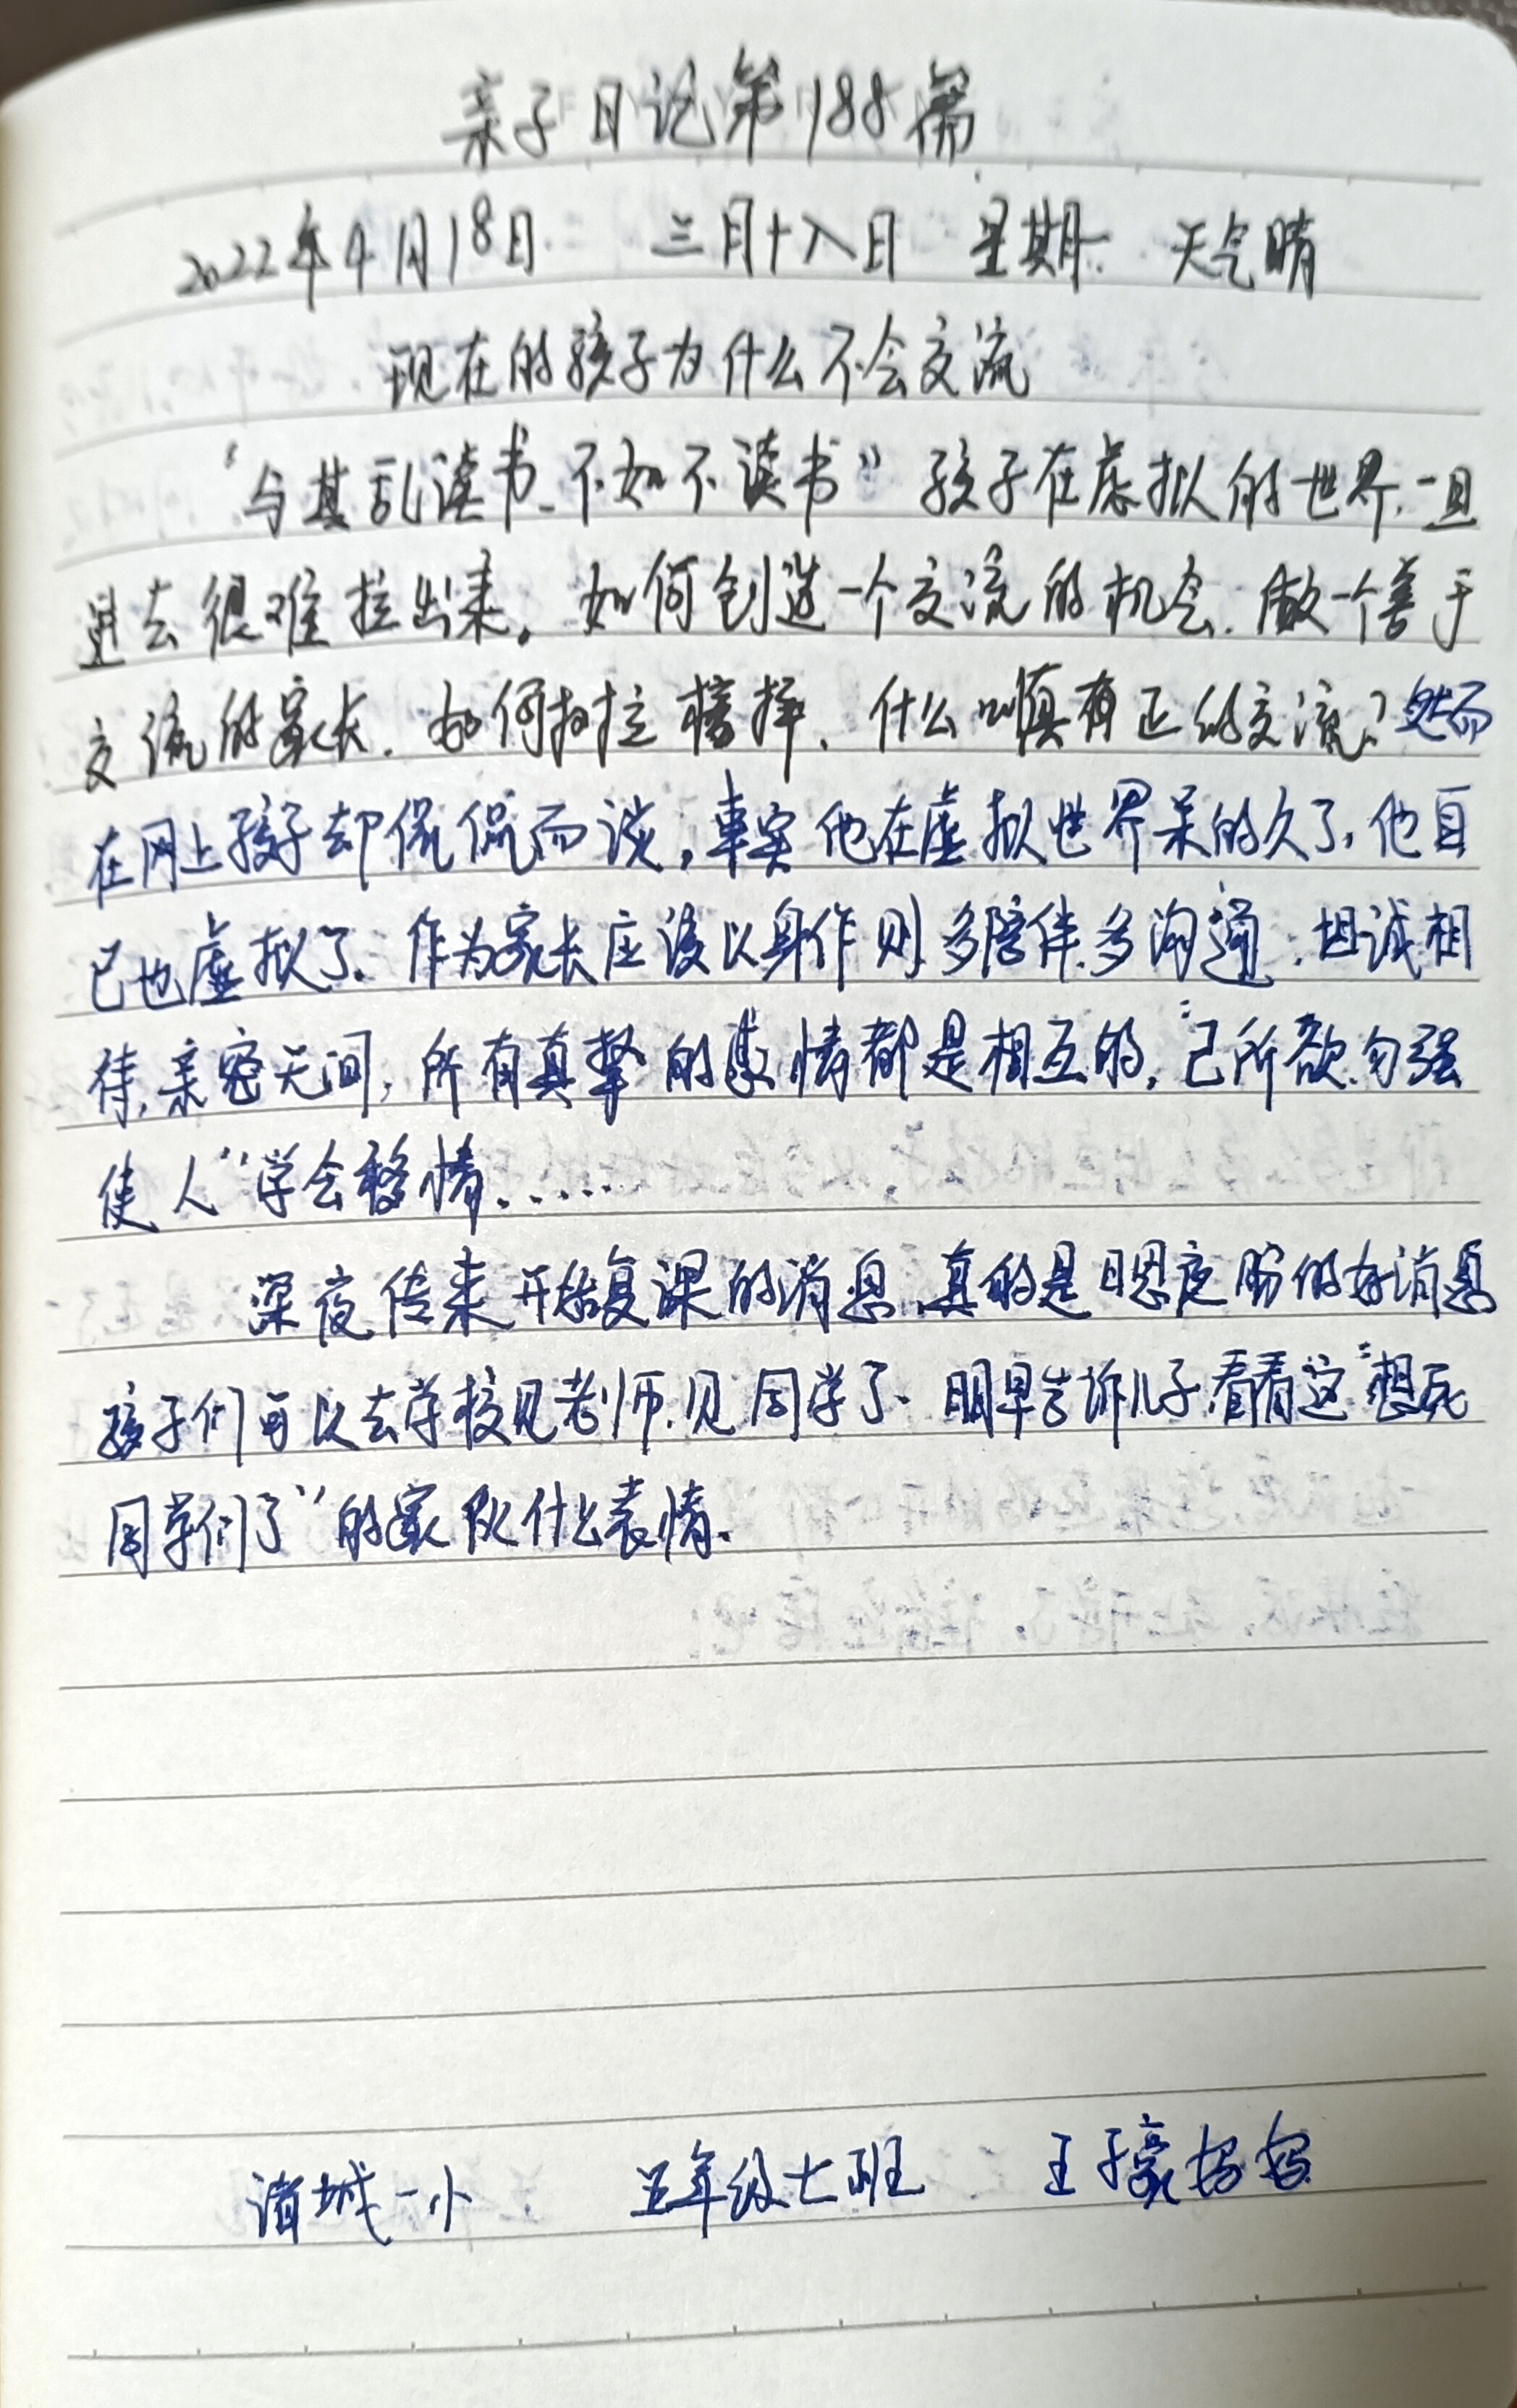 亲子日记第188篇
2022年4月18日 三月十八日 星期一 天气晴
现在的孩子为什么不会交流
“与其乱读书、不如不读书” 孩子在虚拟的世界,一旦
进去很难拉出来。如何创造一个交流的机会.做一个善于
交流的家长.如何抉择、什么叫真有正的交流?然而
在网上孩子却侃侃而谈,事实他在虚拟世界呆的久了,他自
己也虚拟了.作为家长应该以身作则.多陪伴.多沟通.坦诚相
待,亲密无间,所有真挚的感情都是相互的.“己所欲.勿强
使人”学会移情......
深夜传来开始复课的消息.真的是的好消息
孩子们可以去学校见老师.见同学了.明早告诉儿子.看看这“想死
同学们了”的家伙什么表情.
诸城一小 五年级七班 王子豪妈妈